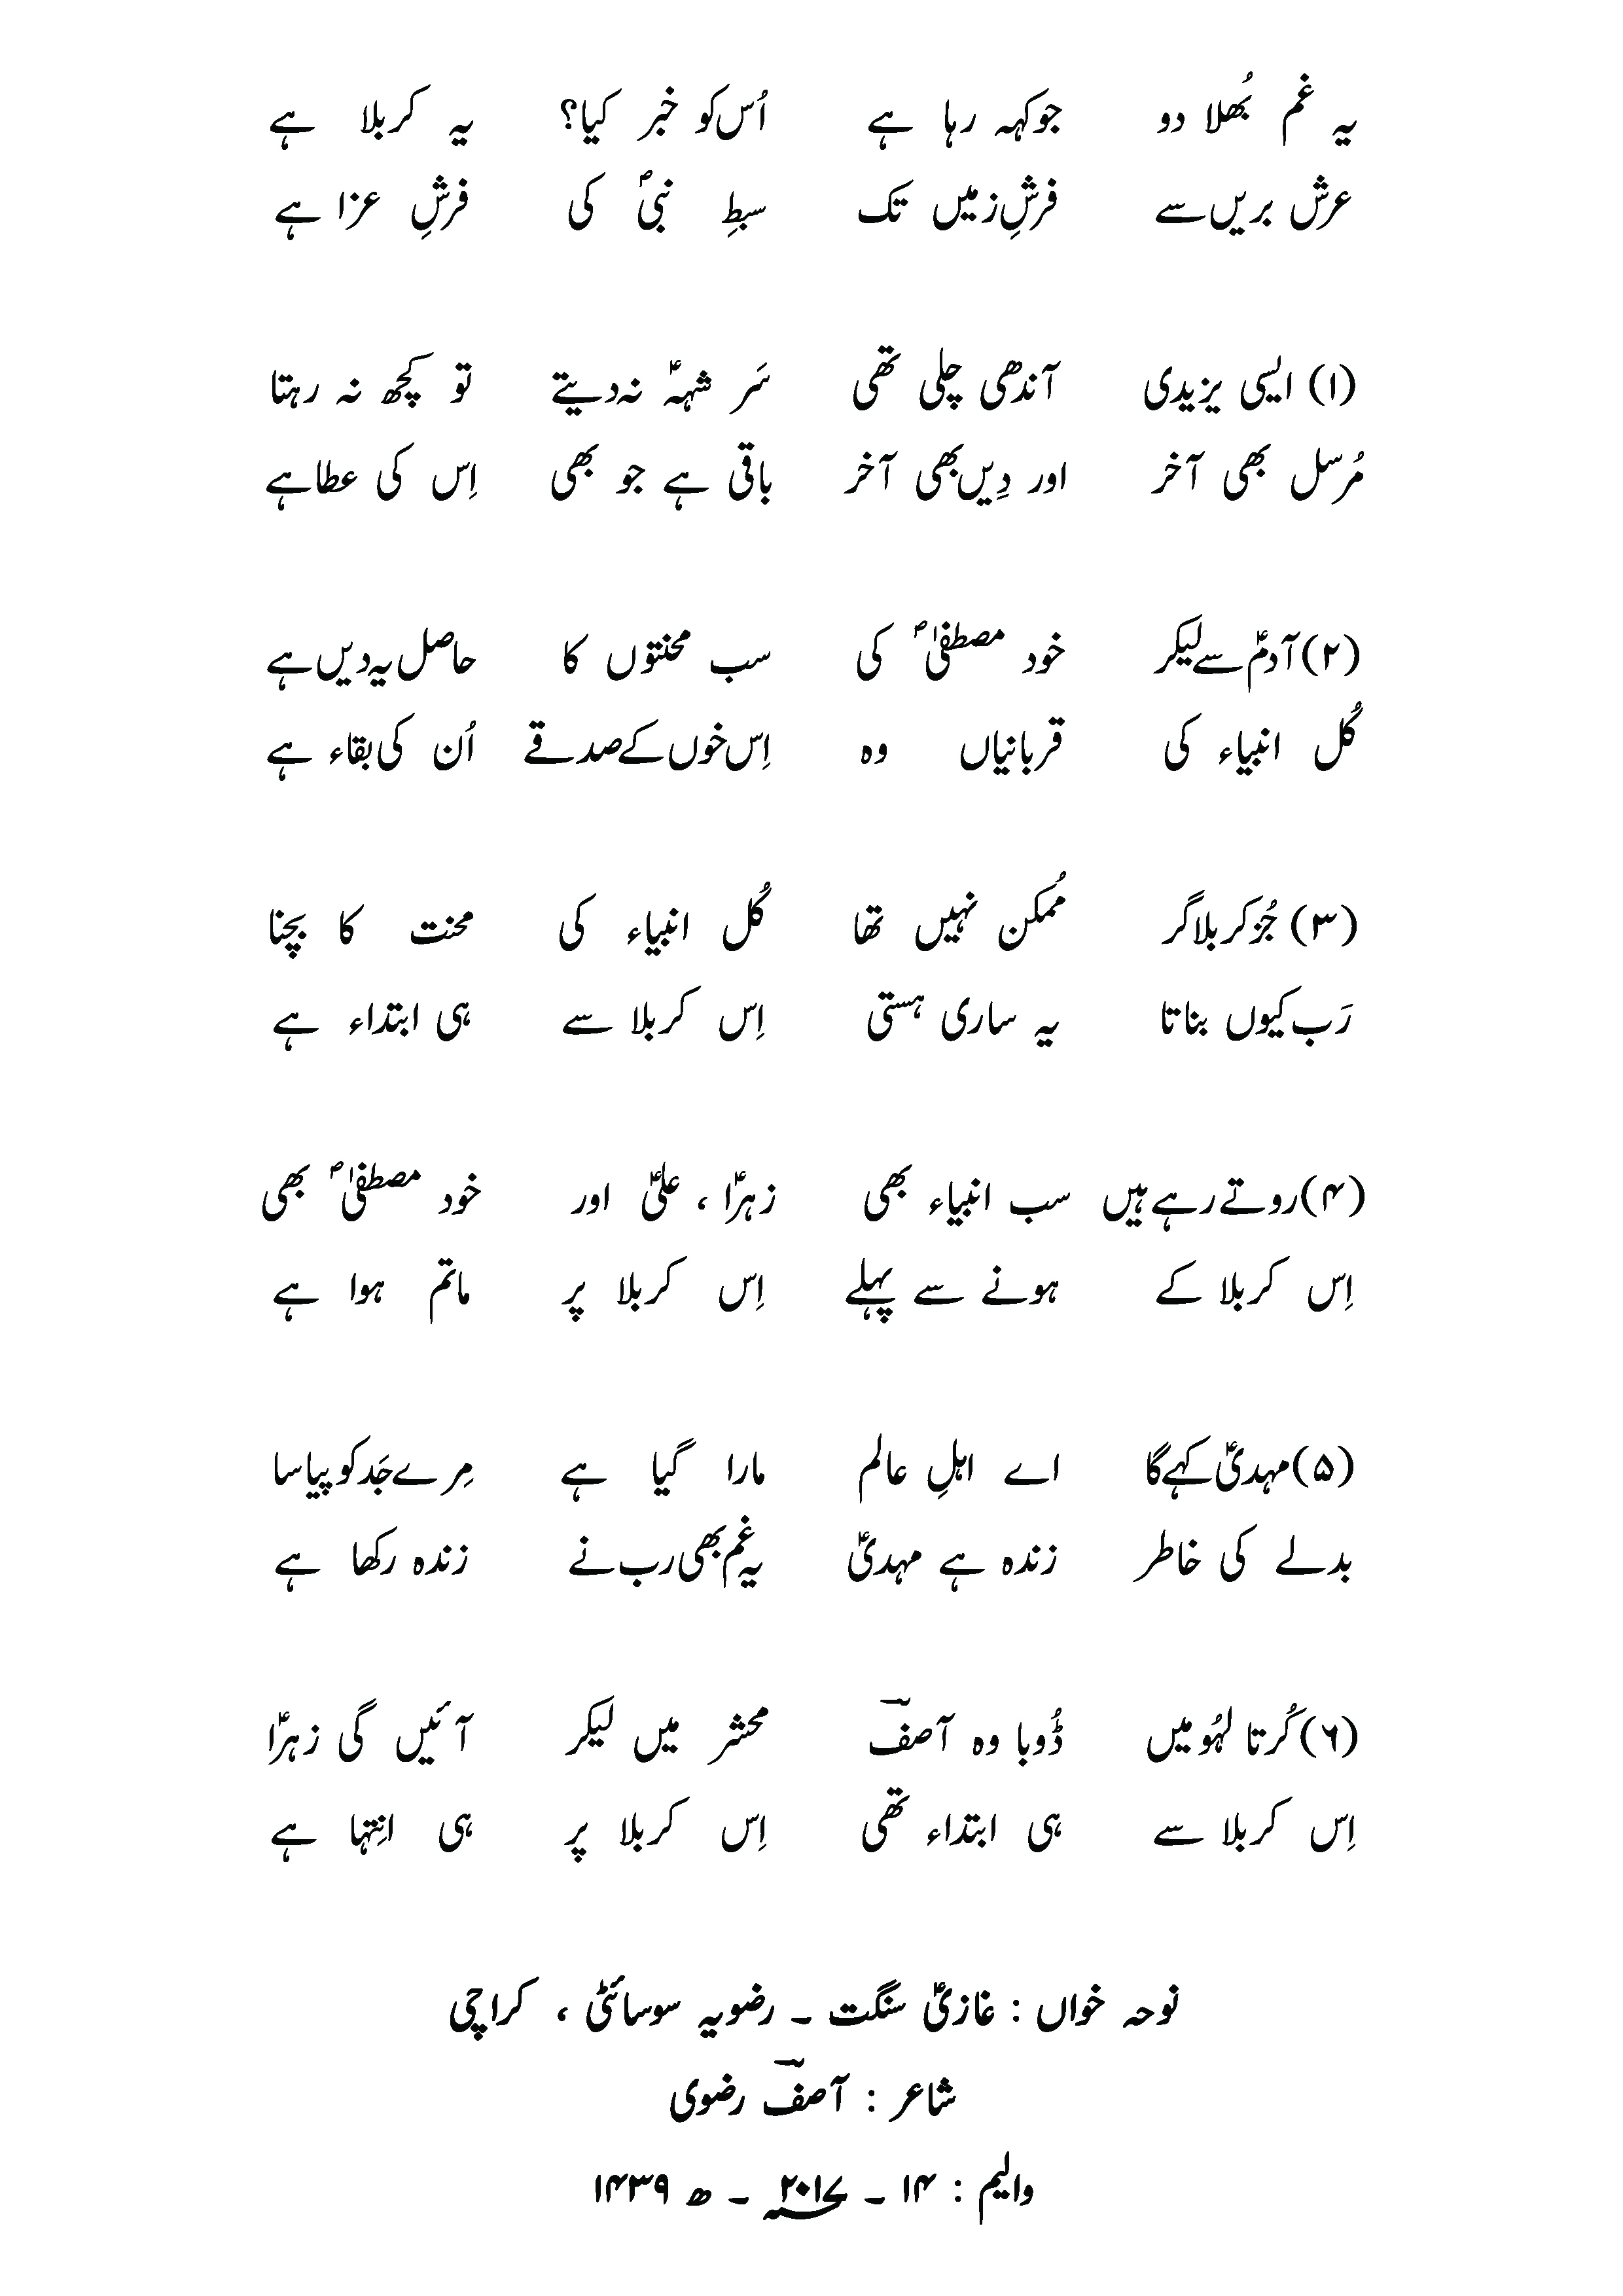 یہ غم بُھلا دو جو کہہ رہا ہے اُس کو خبر کیا؟ یہ کربلا ہے
عرش بریں سے فرشِ زمیں تک سبطِ نبیؐ کی فرشِ عزا ہے
(۱) ایسی یزیدی آندھی چلی تھی سَر شہہؑ نہ دیتے تو کچھ نہ رہتا
مُرسل بھی آخر اور دِیں بھی آخر باقی ہے جو بھی اِس کی عطا ہے
(۲) آدمؑ سے لیکر خود مصطفیٰؐ کی سب محنتوں کا حاصل یہ دیں ہے
کُل انبیاء کی قربانیاں وہ اِس خوں کے صدقے اُن کی بقاء ہے
(۳) جُز کربلا گر مُمکن نہیں تھا کُل انبیاء کی محنت کا بَچنا
رَب کیوں بناتا یہ ساری ہستی اِس کربلا سے ہی ابتداء ہے
(۴) روتے رہے ہیں سب انبیاء بھی زہراؑ ، علیؑ اور خود مصطفیٰؐ بھی
اِس کربلا کے ہونے سے پہلے اِس کربلا پر ماتم ہوا ہے
(۵) مہدیؑ کہے گا اے اہلِ عالم مارا گیا ہے مِرے جَد کو پیاسا
بدلے کی خاطر زندہ ہے مہدیؑ یہ غم بھی رب نے زندہ رکھا ہے
(۶) کُرتا لہُو میں ڈُوبا وہ آصفؔ محشر میں لیکر آئیں گی زہراؑ
اِس کربلا سے ہی ابتداء تھی اِس کربلا پر ہی انِتہا ہے
نوحہ خواں : غازیؑ سنگت ۔ رضویہ سوسائٹی ، کراچی
شاعر : آصفؔ رضوی
والیم : ۱۴ ۔ ۲۰۱۷؁ ۔ ھ ۱۴۳۹